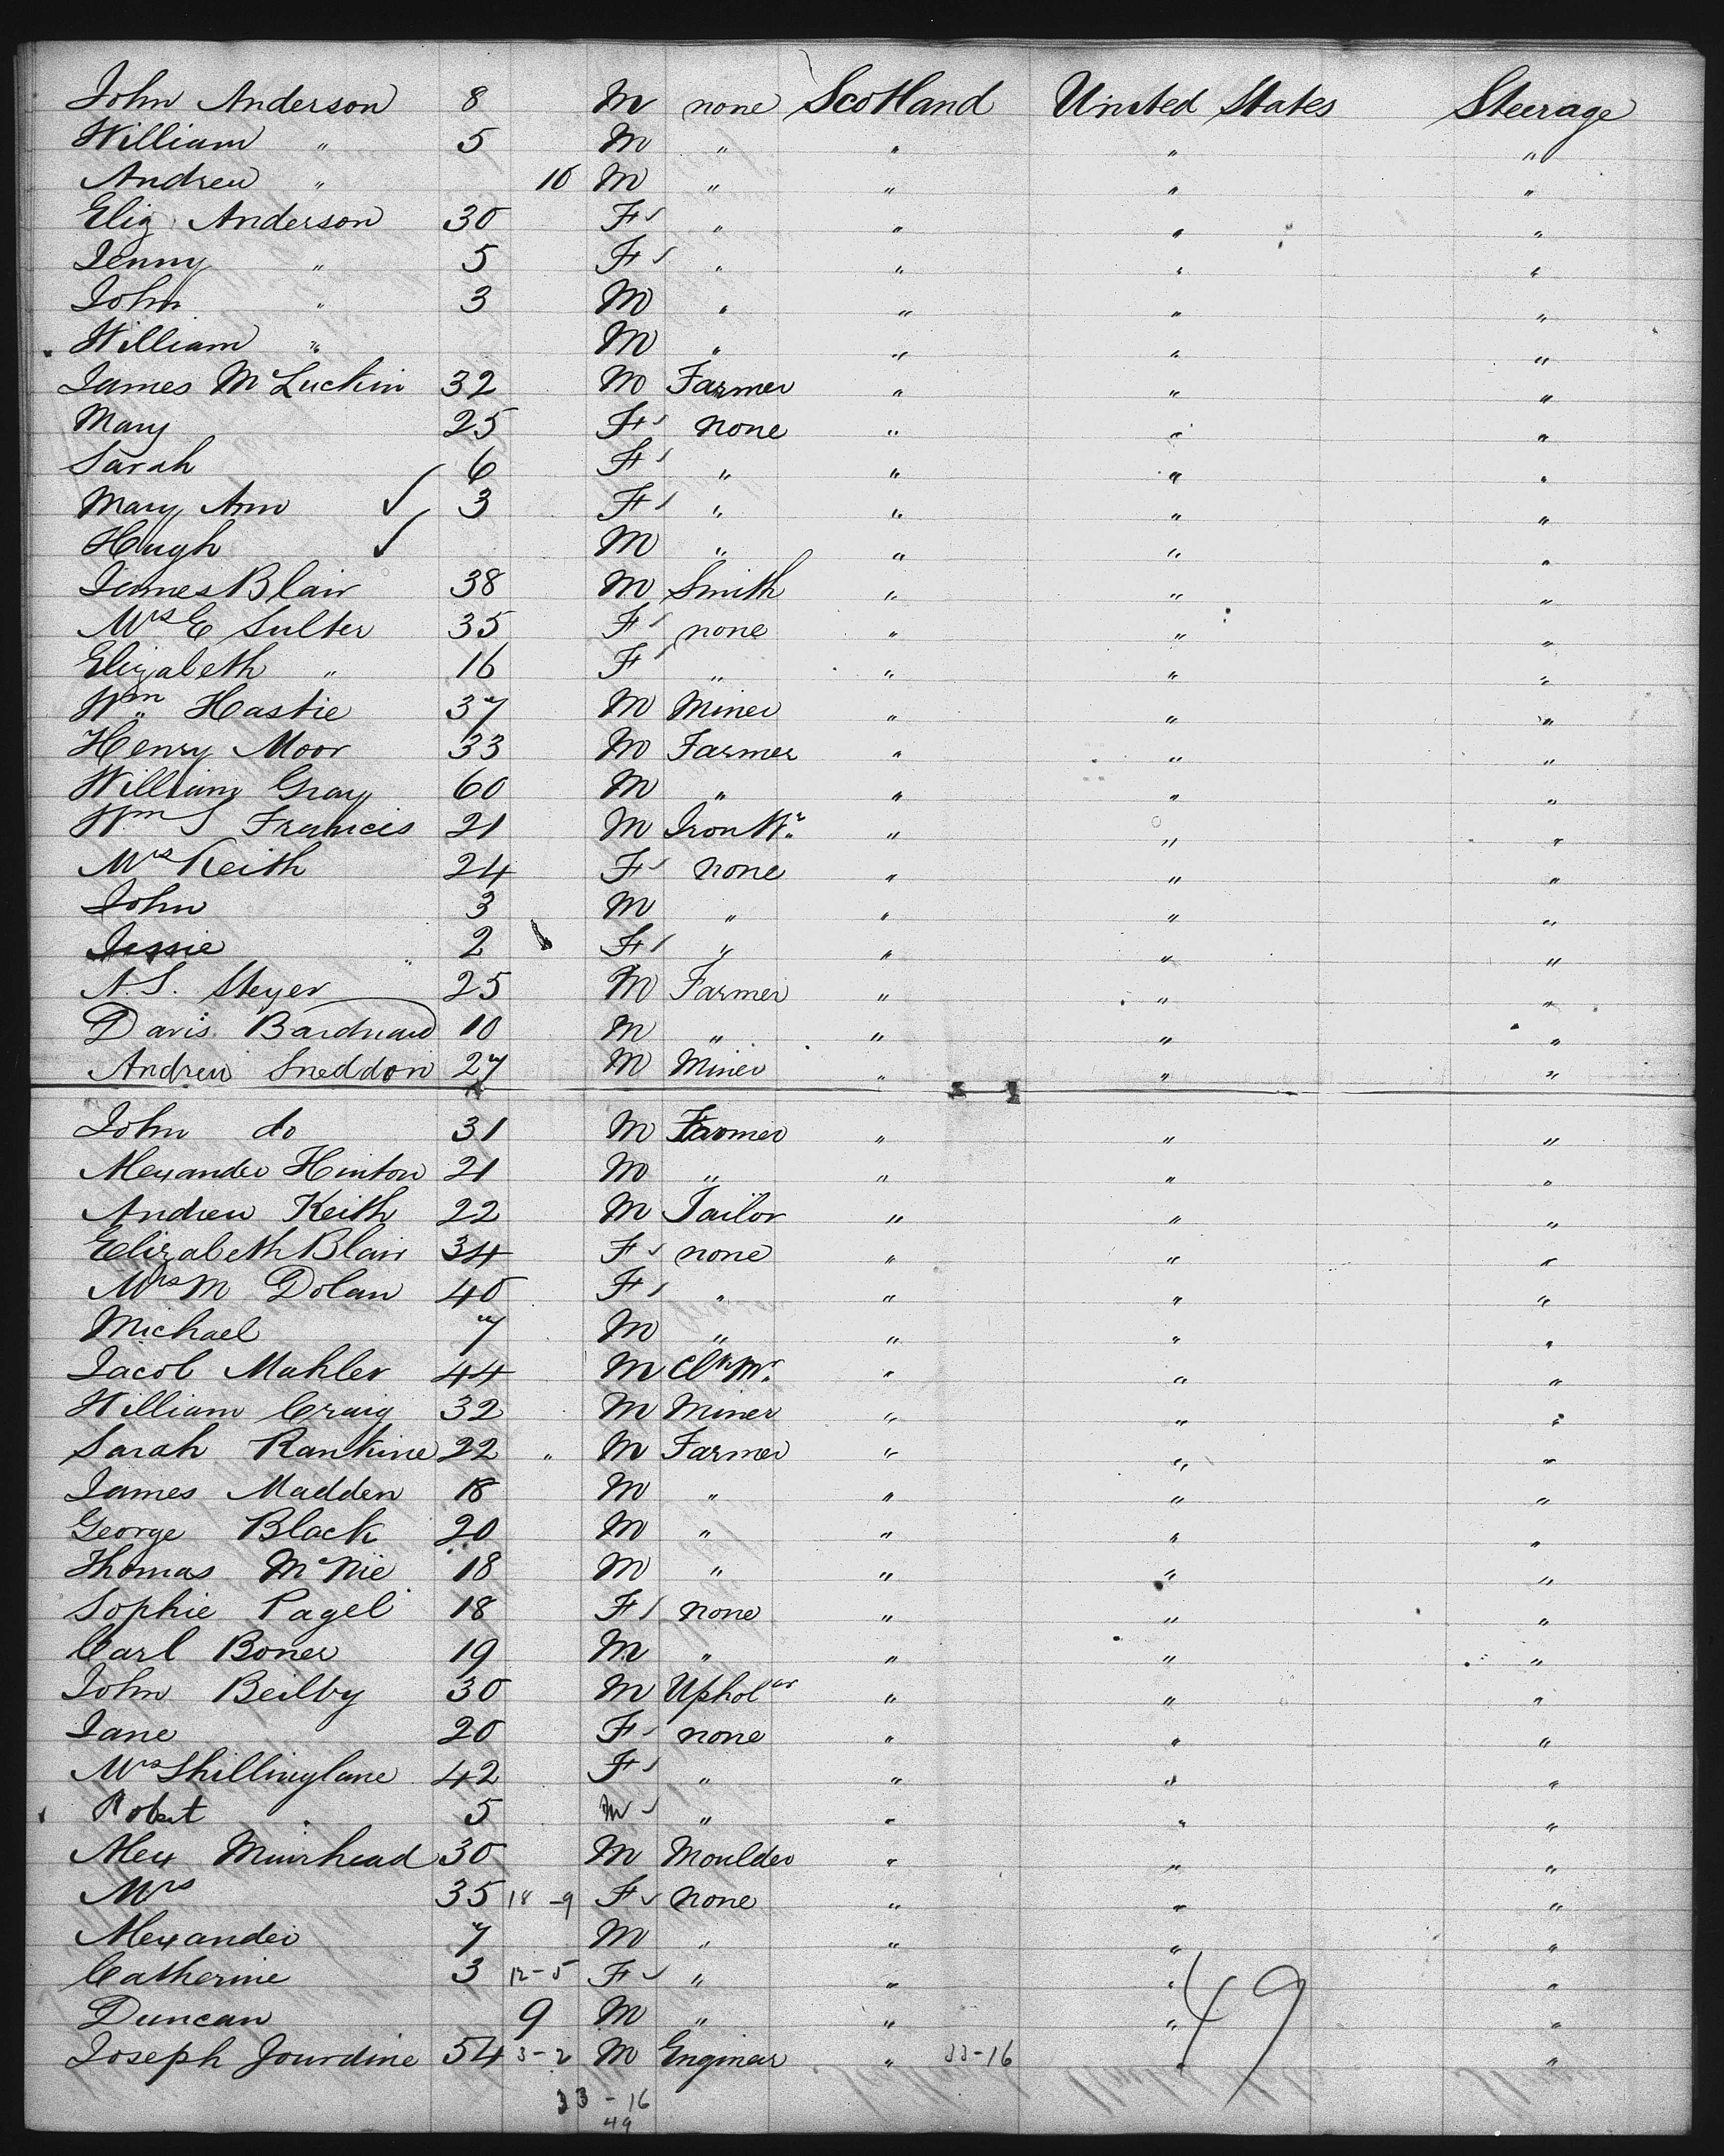 John Anderson 8 M none Scotland United States Steerage
William " 5 M " " " "
Andrew " 10 M " " " "
Eliz Anderson 30 F " " " "
Jenny " 5 F " " " "
John " 3 M " " " "
William " M " " " "
James McLuckin 32 M Farmer " " "
Mary 25 F none " " "
Sarah 6 F " " " "
Mary Ann ✓ 3 F " " " "
Hugh ✓ M " " " "
James Blair 38 M Smith " " "
Mrs E Sulter 35 F none " " "
Elizabeth " 16 F " " " "
Wm Hastie 37 M Miner " " "
Henry Moor 33 M Farmer " " "
William Gray 60 M " " " "
Wm S Francis 21 M Iron Wr " " "
Mrs Keith 24 F none " " "
John 3 M " " " "
Jessie 2 F " " " "
A. S. Steyer 25 M Farmer " " "
Davis 10 M " " " "
Andrew Sneddon 27 M Miner " " "
John do 31 M Farmer " " "
Alexander Hinton 21 M " " " "
Andrew Keith 22 M Tailor " " "
Elizabeth Blair 34 F none " " "
Mrs M Dolan 40 F " " " "
Michael 7 M " " " "
Jacob Mahler 44 M " " "
William Craig 32 M Miner " " "
Sarah Rankine 22 " M Farmer " " "
James Madden 18 M " " " "
George Black 20 M " " " "
Thomas McNie 18 M " " " "
Sophie Pagel 18 F none " " "
Carl Boner 19 M " " " "
John Beilby 30 M Upholer " " "
Jane 20 F none " " "
Mrs Shillinglane 42 F " " " "
Robert 5 M " " " "
Alex Muirhead 30 M Moulder " " "
Mrs 35 18-9 F none " " "
Alexander 7 M " " " "
Catherine 3 12-5 F " " " "
Duncan 9 M " " " "
Joseph Jourdine 54 3-2 M Enginear " 33-16 " "
49
33-16
49